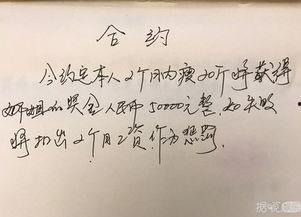 合约
今约定本人2个月内瘦20斤将获得
姐的奖金人民币50000元整,如失败
将扣出2个月工资作为惩罚.
据呗